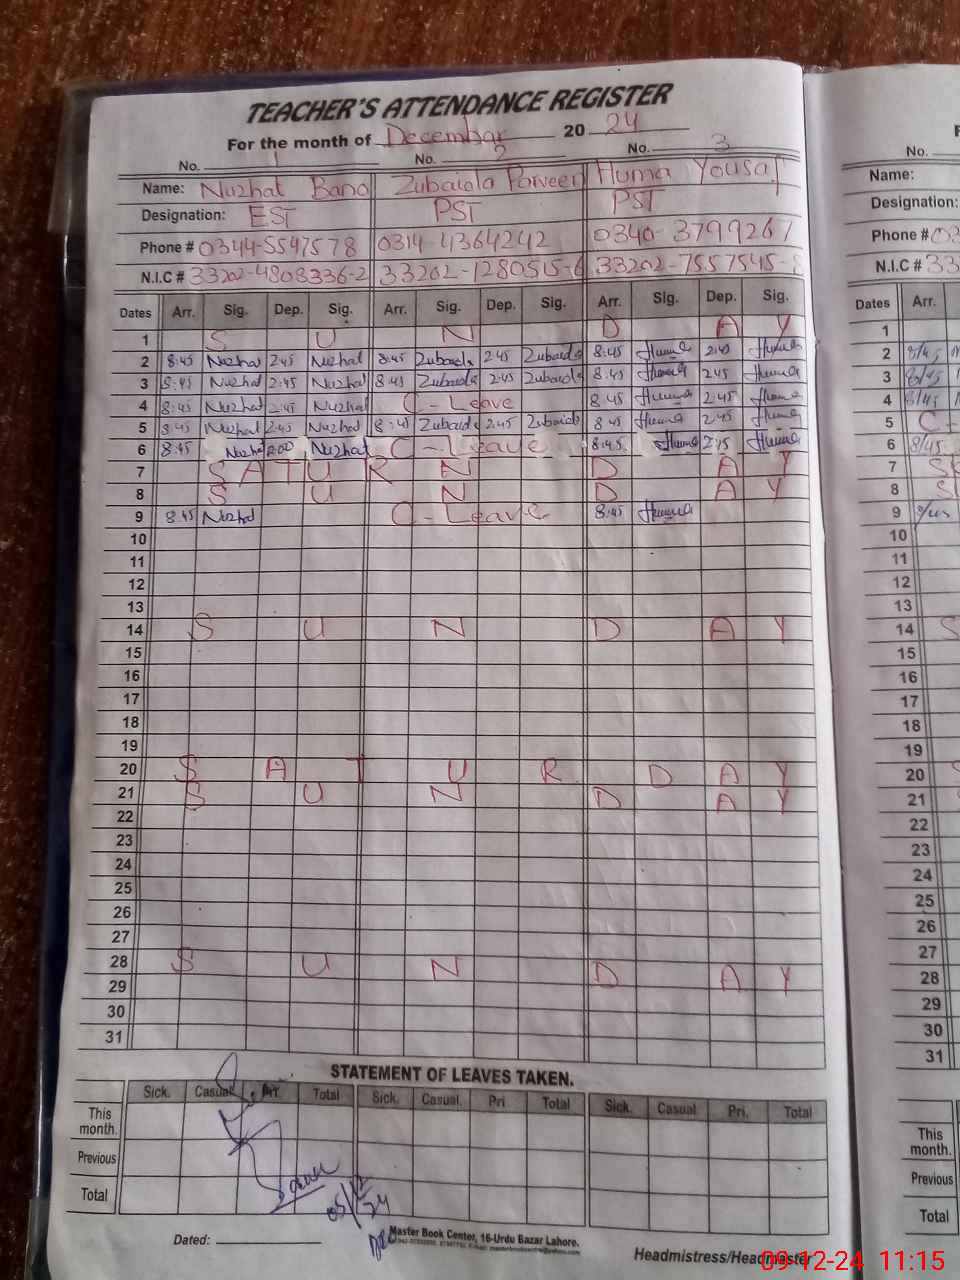 TEACHER'S ATTENDANCE REGISTER
For the month of December 20 24
No. 1 No. 2 No. 3 No.
Name: Nuzhat Bano Zubaida Parveen Huma Yousaf Name:
Designation: EST PST PST Designation:
Phone # 0344-5547578 0314-4364242 0340-3799267 Phone # 03
N.I.C # 33202-4808336-2 33202-1280515-6 33202-7557545-8 N.I.C # 33
Dates Arr. Sig. Dep. Sig. Arr. Sig. Dep. Sig. Arr. Sig. Dep. Sig. Dates Arr.
1 S U N D A Y 1
2 8:45 Nuzhat 2:45 Nuzhat 8:45 Zubaida 2:45 Zubaida 8:45 Huma 2:45 Huma 2 8/45
3 8:45 Nuzhat 2:45 Nuzhat 8:45 Zubaida 2:45 Zubaida 8:45 Huma 2:45 Huma 3 8/45
4 8:45 Nuzhat 2:45 Nuzhat C-Leave 8:45 Huma 2:45 Huma 4 8/45
5 8:45 Nuzhat 2:45 Nuzhat 8:45 Zubaida 2:45 Zubaida 8:45 Huma 2:45 Huma 5 C-
6 8:45 Nuzhat 2:00 Nuzhat C-Leave 8:45 Huma 2:45 Huma 6 8/45
7 S A T U R N D A Y 7
8 S U N D A Y 8
9 8:45 Nuzhat C-Leave 8:45 Huma 9
10 10
11 11
12 12
13 13
14 S U N D A Y 14 S
15 15
16 16
17 17
18 18
19 19
20 S A T U R D A Y 20
21 S U N D A Y 21
22 22
23 23
24 24
25 25
26 26
27 27
28 S U N D A Y 28
29 29
30 30
31 31
STATEMENT OF LEAVES TAKEN.
Sick. Casual Pri. Total Sick. Casual. Pri Total Sick. Casual Pri. Total
This month. This month.
Previous Previous
Total Total
05/12/24
Dated:
Master Book Center, 16-Urdu Bazar Lahore.
Headmistress/Headmaster
09-12-24 11:15